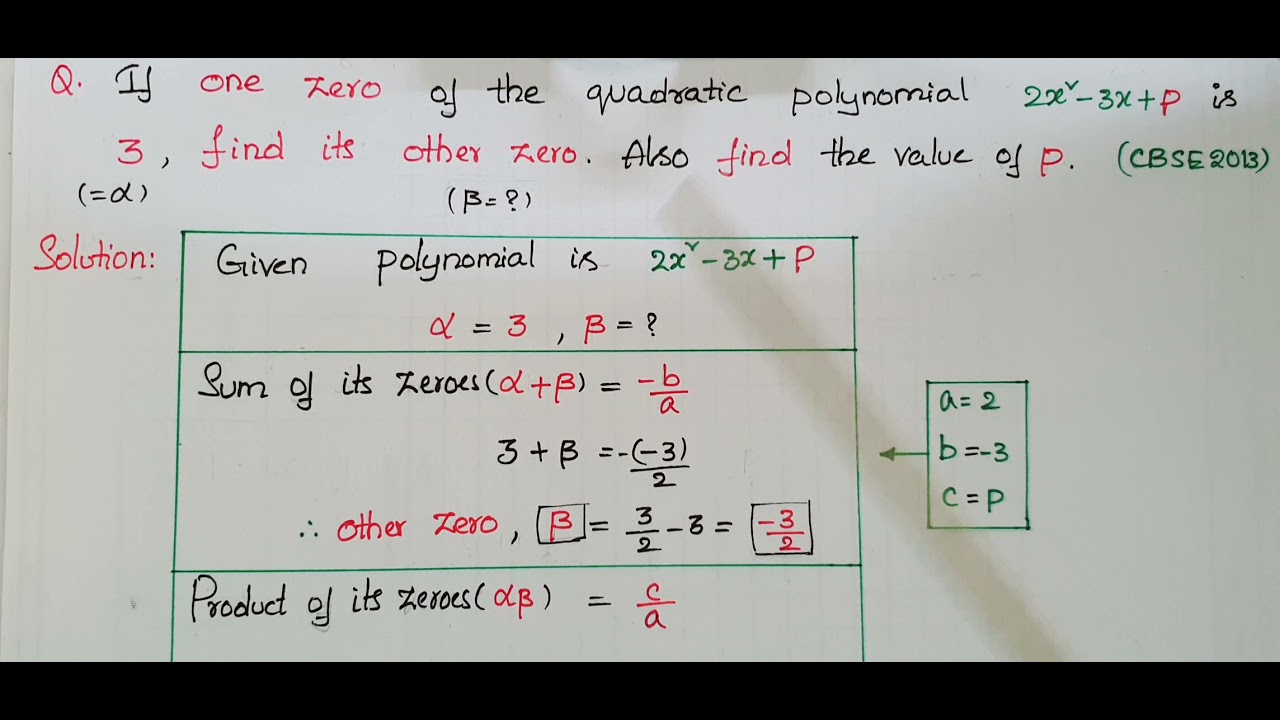 Q. If one zero of the quadratic polynomial 2x² - 3x + p is
3, find its other zero. Also find the value of p. (CBSE 2013)
(=α) (β=?)
Solution: Given polynomial is 2x² - 3x + p
α = 3, β = ?
Sum of its zeroes (α+β) = -b/a
3 + β = -(-3)/2
∴ other zero, β = 3/2 - 3 = -3/2
Product of its zeroes (αβ) = c/a
a = 2
b = -3
c = p